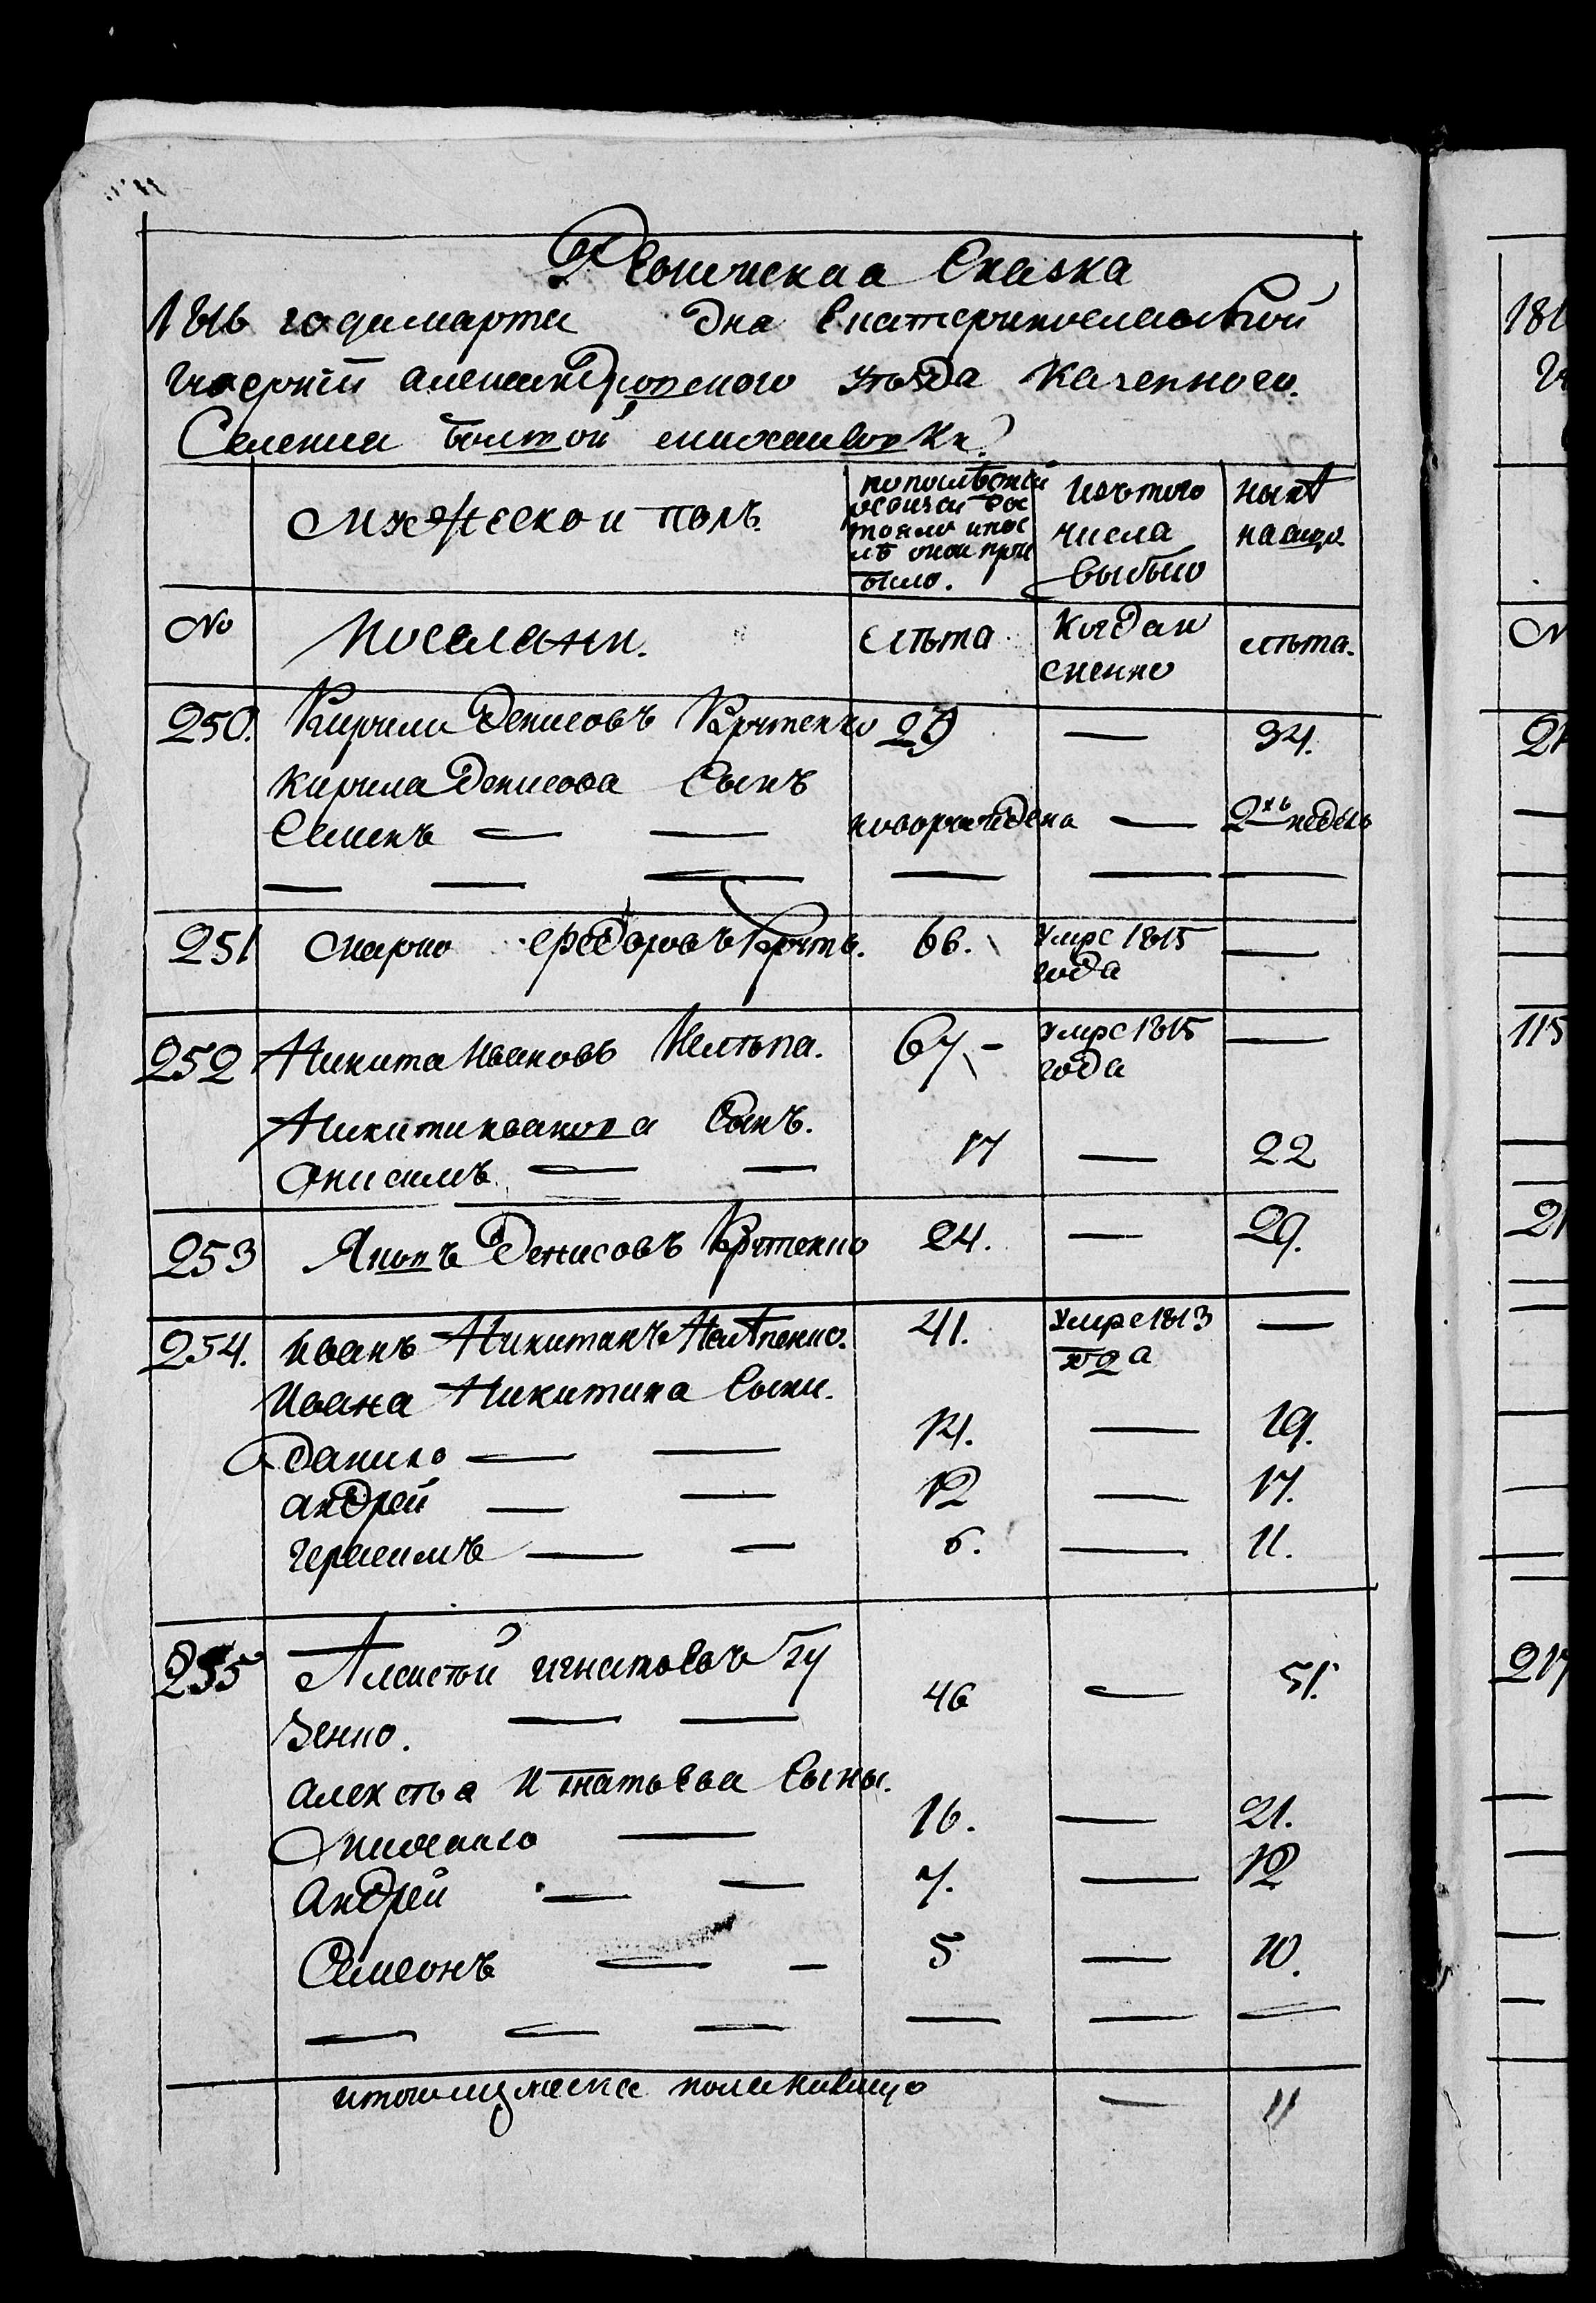 Ревижская Сказка
1816 года марта дня Екатеринославской
Губернїи александровского уѣзда Казенного
Селения белой михайловки
Мужеской полъ.
по последней ревизїи состояло и после оной прибыло.
Изъ того числа выбыло
ныне на лицо
№
поселяни.
Лѣта
Когда и именно
лѣта.
250. Кирила Денисовъ Крутенко 29 — 34.
Кирила Денисова Сынъ
Семенъ — — новорожденъ — 2хъ недѣль
251 Марко Федоровъ Крутъ. 66. умре 1815 года —
252 Никита Ивановъ Нелѣпа. 67. — умре 1815 года —
Никити иванова Сынъ.
Онисимъ — — 17 — 22
253 Яковъ Денисовъ Крутенко 24. — 29.
254. Иванъ Никитинъ Нелѣпенко. 41. умре 1813 года —
Ивана Никитина Сыни.
данило — — 14. — 19.
андрей — — 12 — 17.
герасимъ — — 6. — 11.
255 Алексей игнатьевъ Гу
зенко. — — 46 — 51.
алексѣя Игнатьева Сыны.
михайло — 16. — 21.
Андрей — — 7. — 12
Семеонъ — — 5 — 10.
итого мужеска пола наличо — 11
181
115
217